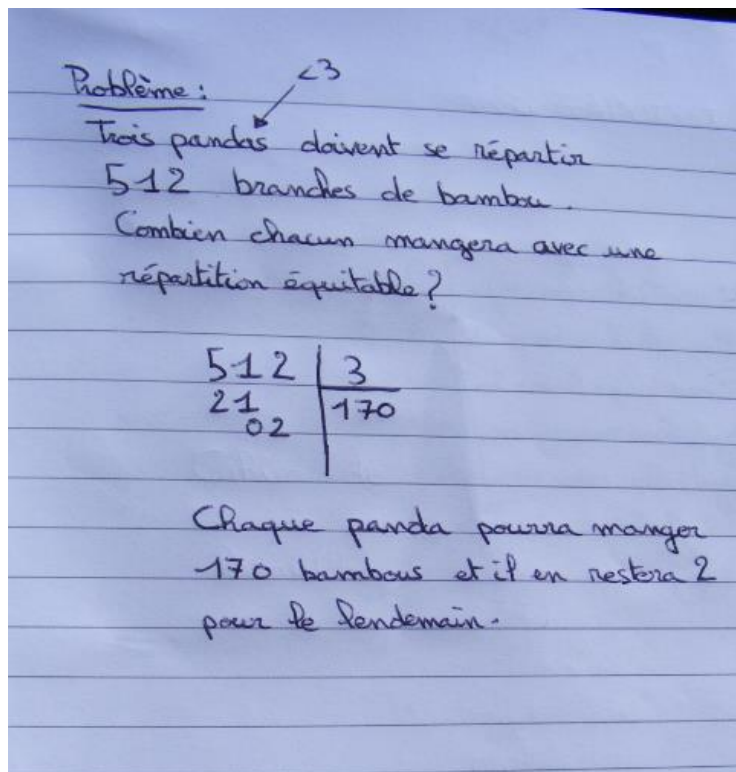 <3
Problème :
Trois pandas doivent se répartir
512 branches de bambou.
Combien chacun mangera avec une
répartition équitable ?
512 | 3
21 | 170
02
Chaque panda pourra manger
170 bambous et il en restera 2
pour le lendemain.